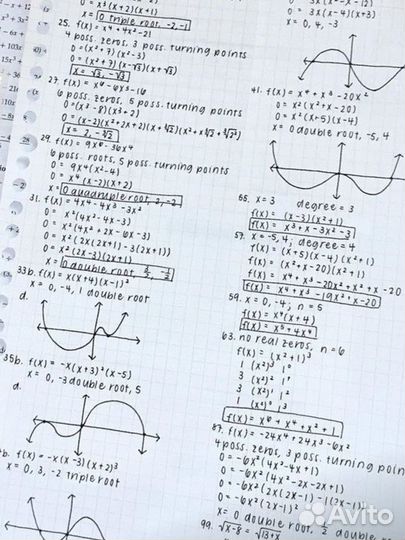 0 = x³(x+2)(x+1)
x = 0 triple root, -2, -1
25. f(x) = x⁴ + 4x² - 21
4 poss. zeros, 3 poss. turning points
0 = (x² + 7)(x² - 3)
0 = (x² + 7)(x - √3)(x + √3)
x = √3, -√3
27. f(x) = x⁶ - 6x³ - 16
6 poss. zeros, 5 poss. turning points
0 = (x³ - 8)(x³ + 2)
x = 2, -∛2
29. f(x) = 9x⁶ - 36x⁴
6 poss. roots, 5 poss. turning points
0 = 9x⁴(x² - 4)
0 = x⁴(x - 2)(x + 2)
x = 0 quadruple root, 2, -2
31. f(x) = 4x⁴ - 4x³ - 3x²
0 = x²(4x² - 4x - 3)
0 = x²(4x² + 2x - 6x - 3)
0 = x²(2x(2x+1) - 3(2x+1))
0 = x²(2x - 3)(2x + 1)
x = 0 double root, 3/2, -1/2
33b. f(x) = x(x+4)(x-1)²
x = 0, -4, 1 double root
d.
35b. f(x) = -x(x+3)²(x-5)
x = 0, -3 double root, 5
d.
b. f(x) = -x(x-3)(x+2)³
x = 0, 3, -2 triple root
0 = 3x(x-4)(x+3)
x = 0, 4, -3
41. f(x) = x⁴ + x³ - 20x²
0 = x²(x² + x - 20)
0 = x²(x+5)(x-4)
x = 0 double root, -5, 4
55. x = 3 degree = 3
f(x) = (x-3)(x²+1)
f(x) = x³ + x - 3x² - 3
57. x = -5, 4; degree = 4
f(x) = (x+5)(x-4)(x²+1)
f(x) = (x² + x - 20)(x²+1)
f(x) = x⁴ + x³ - 20x² + x² + x - 20
f(x) = x⁴ + x³ - 19x² + x - 20
59. x = 0, -4; n = 5
f(x) = x⁴(x+4)
f(x) = x⁵ + 4x⁴
63. no real zeros, n = 6
f(x) = (x²+1)³
1 (x²)³ 1⁰
3 (x²)² 1¹
3 (x²)¹ 1²
1 (x²)⁰ 1³
f(x) = x⁶ + x⁴ + x² + 1
87. f(x) = -24x⁴ + 24x³ - 6x²
4 poss. zeros, 3 poss. turning poin
0 = -6x²(4x² - 4x + 1)
0 = -6x²(4x² - 2x - 2x + 1)
0 = -6x²(2x(2x-1) - 1(2x-1))
0 = -6x²(2x-1)²
x = 0 double root, 1/2 double
99. √x-8 = √13+x
Avito